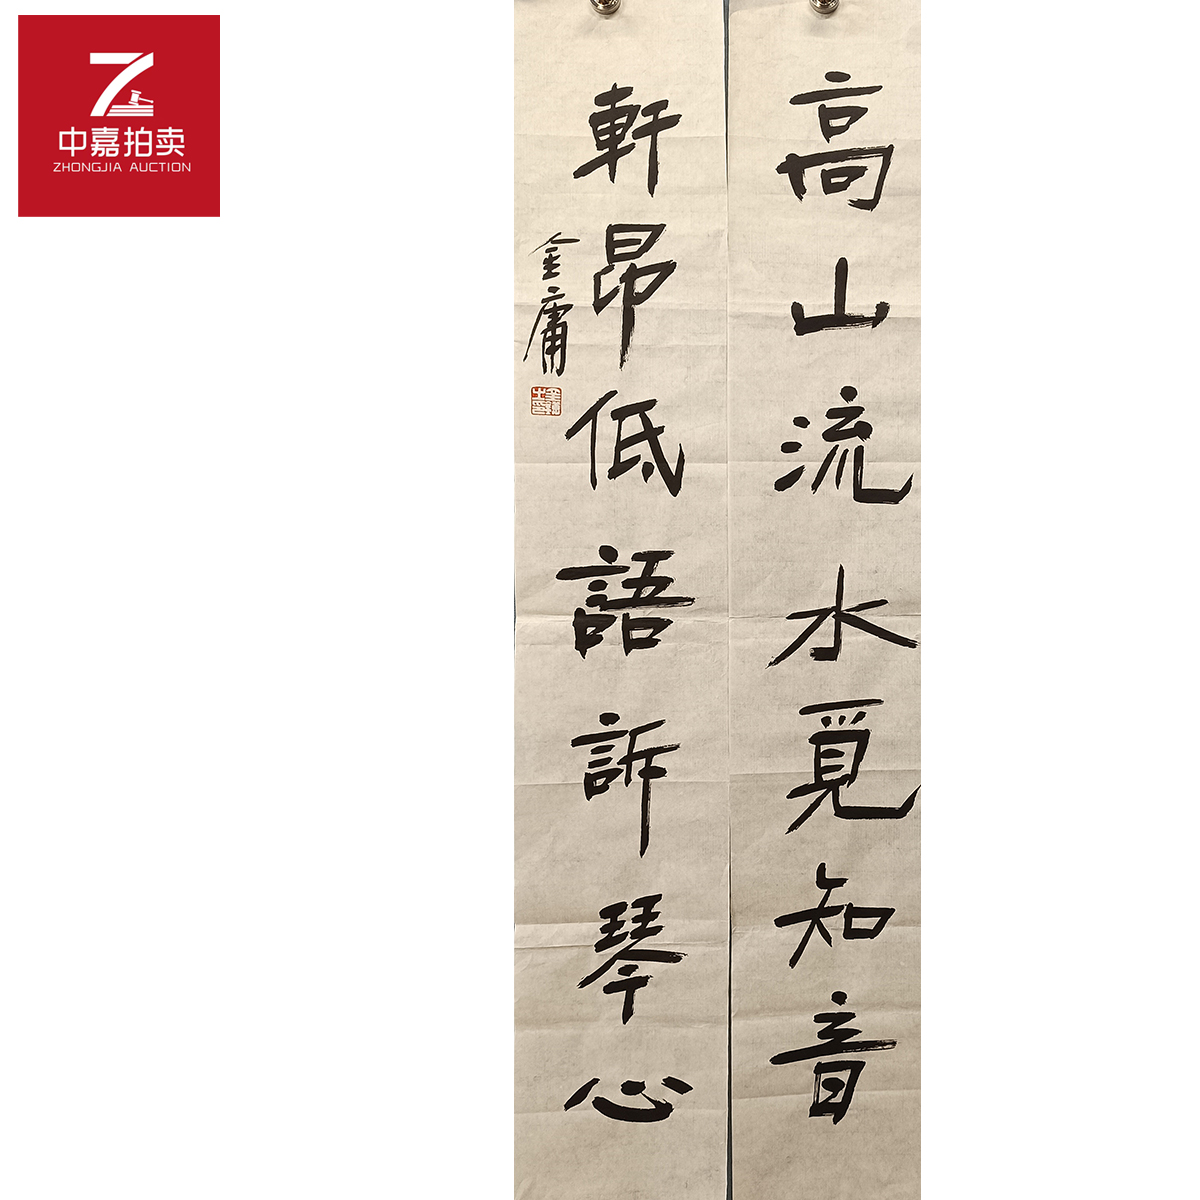 中嘉拍卖
ZHONGJIA AUCTION
高山流水覓知音
軒昂低語訴琴心
金庸